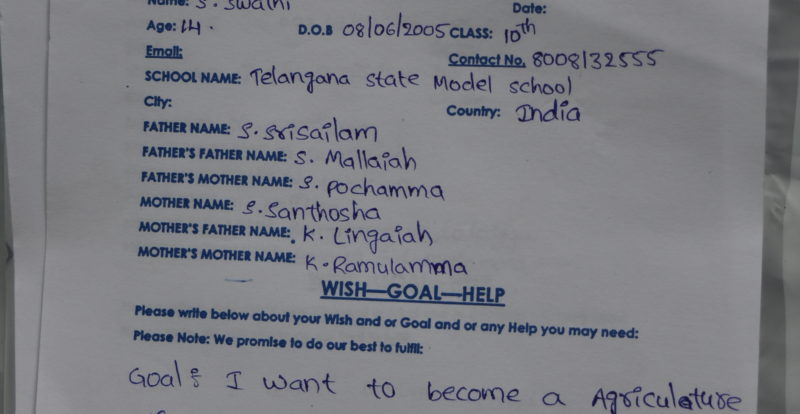 Name: S. Swathi Date:
Age: 14. D.O.B 08/06/2005 CLASS: 10th
Email: Contact No. 8008132555
SCHOOL NAME: Telangana state Model school
City: Country: India
FATHER NAME: S. Srisailam
FATHER'S FATHER NAME: S. Mallaiah
FATHER'S MOTHER NAME: S. pochamma
MOTHER NAME: S. Santhosha
MOTHER'S FATHER NAME: K. Lingaiah
MOTHER'S MOTHER NAME: K. Ramulamma
WISH—GOAL—HELP
Please write below about your Wish and or Goal and or any Help you may need:
Please Note: We promise to do our best to fulfil:
Goal: I want to become a Agriculature